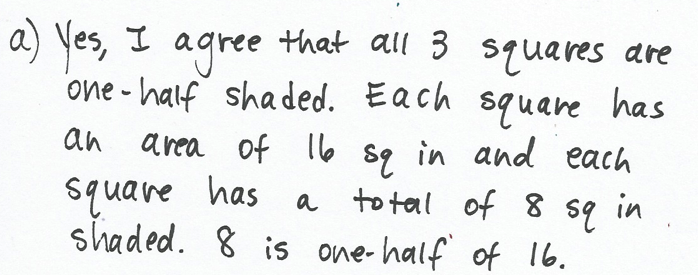 a) Yes, I agree that all 3 squares are
one-half shaded. Each square has
an area of 16 sq in and each
square has a total of 8 sq in
shaded. 8 is one-half of 16.